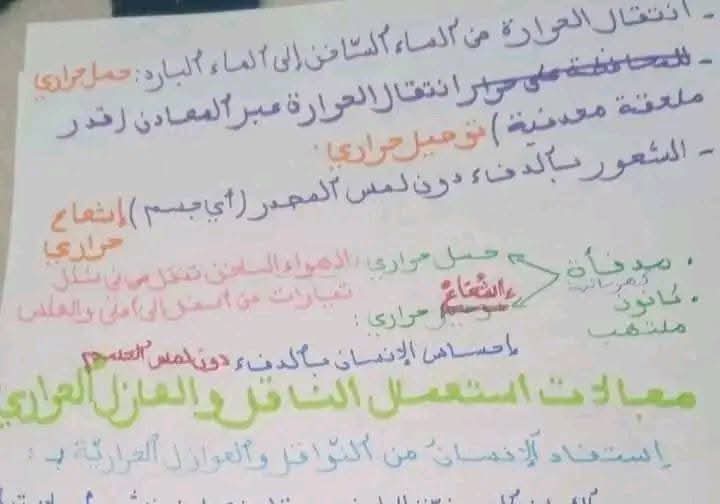 - انتقال الحرارة من الماء الساخن إلى الماء البارد: حمل حراري
- للمحافظة على حرار انتقال الحرارة عبر المعادن (قدر
ملعقة معدنية) توصيل حراري.
- الشعور بالدفاء دون لمس المصدر (أي جسم) إشعاع
حراري
• مدفأة
كهربائية
• كانون
ملتهب
حمل حراري: الهواء الساخن تنتقل في شكل
تيارات من أسفل إلى أعلى والعكس
إشعاع
توصيل حراري:
إحساس الإنسان بالدفاء دون لمس الجسم
مجالات استعمال الناقل والعازل الحراري
إستفاد الإنسان من النواقل والعوازل الحرارية بـ: